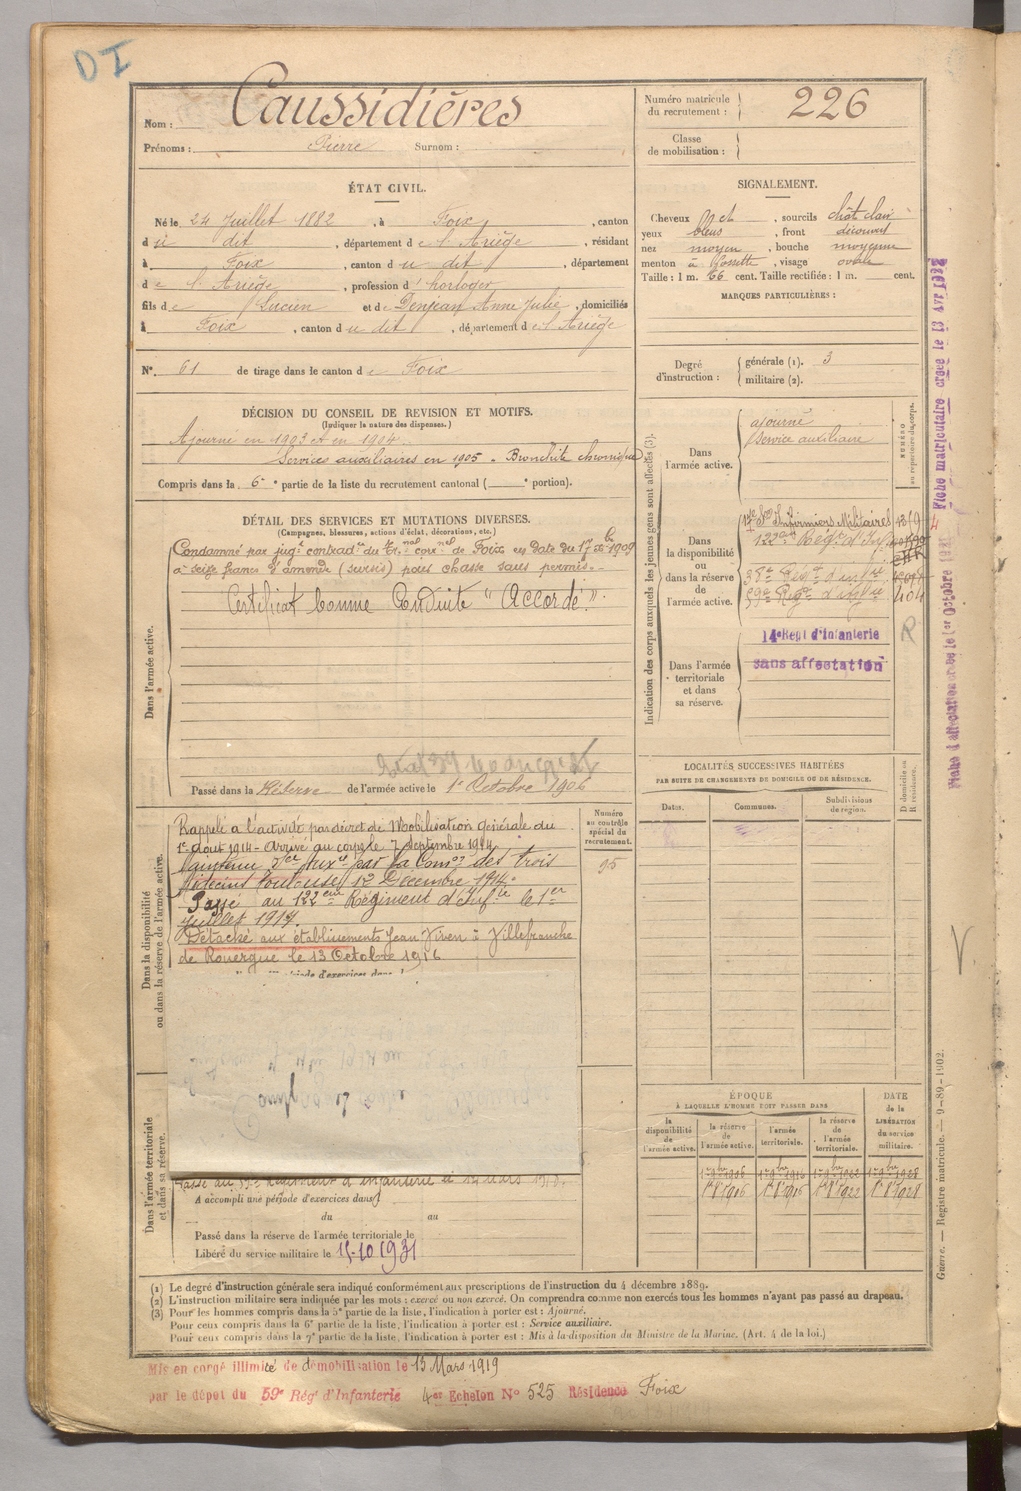 DI
Nom : Caussidières
Prénoms : Pierre Surnom :
Numéro matricule du recrutement : 226
Classe de mobilisation :
ÉTAT CIVIL.
Né le 24 Juillet 1882, à Foix, canton
du dit, département de l'Ariège, résidant
à Foix, canton du dit, département
de l'Ariège, profession d'horloger
fils de Lucien et de Denjean Anne Julie, domiciliés
à Foix, canton du dit, département de l'Ariège
N° 61 de tirage dans le canton de Foix
SIGNALEMENT.
Cheveux chat, sourcils chât clair
yeux bleus, front découvert
nez moyen, bouche moyenne
menton à fossette, visage ovale
Taille : 1 m. 66 cent. Taille rectifiée : 1 m. cent.
MARQUES PARTICULIÈRES :
Degré d'instruction : générale (1). 3
militaire (2).
DÉCISION DU CONSEIL DE REVISION ET MOTIFS.
(Indiquer la nature des dispenses.)
Ajourné en 1903 et en 1904.
Services auxiliaires en 1905 - Bronchite chronique
Compris dans la 6e partie de la liste du recrutement cantonal ( e portion).
DÉTAIL DES SERVICES ET MUTATIONS DIVERSES.
(Campagnes, blessures, actions d'éclat, décorations, etc.)
Condamné par jugt contradre du Trnal correl de Foix en date du 17 Xbre 1909
à seize francs d'amende (sursis) pour chasse sans permis.-
Certificat bonne Conduite "Accordé".
Dans l'armée active.
Passé dans la Réserve de l'armée active le 1r Octobre 1906
Indication des corps auxquels les jeunes gens sont affectés (3).
Dans l'armée active.
ajourné
Service auxiliaire
NUMÉRO au répertoire du corps.
Dans la disponibilité ou dans la réserve de l'armée active.
17e Son Infirmiers Militaires
122eme Régt d'Inf
59e Régt d'Infie
404
R
Dans l'armée territoriale et dans sa réserve.
14e Regt d'Infanterie
sans affectation
Fiche matriculaire créée le 13 AVR
Fiche d'affectation créée le 1er Octobre
LOCALITÉS SUCCESSIVES HABITÉES
PAR SUITE DE CHANGEMENTS DE DOMICILE OU DE RÉSIDENCE.
Dates. Communes. Subdivisions de région.
D domicile ou R résidence.
Dans la disponibilité ou dans la réserve de l'armée active.
Rappelé à l'activité par décret de Mobilisation générale du
1er Août 1914 - Arrivé au corps le 7 Septembre 1914
Maintenu Sce Auxre par la Comon des trois
Médecins Toulouse, 12 Décembre 1914.
Passé au 122eme Régiment d'Infie le 1er
Juillet 1917.
Détaché aux établissements Jean Viven à Villefranche
de Rouergue le 13 Octobre 1916
Numéro au contrôle spécial du recrutement.
95
Dans l'armée territoriale et dans sa réserve.
Passé au 59e Régiment d'infanterie
A accompli une période d'exercices dans
du au
Passé dans la réserve de l'armée territoriale le
Libéré du service militaire le 15-10 1931
ÉPOQUE
À LAQUELLE L'HOMME DOIT PASSER DANS
la disponibilité de l'armée active.
la réserve de l'armée active.
l'armée territoriale.
la réserve de l'armée territoriale.
DATE de la LIBÉRATION du service militaire.
1r 9bre 1906 1r 9bre 1916 1r 9bre 1922 1r 9bre 1928
1r 8e 1906 1r 8e 1916 1r 8e 1922 1r 8e 1928
V
Guerre. — Registre matricule. — 9-89-1902.
(1) Le degré d'instruction générale sera indiqué conformément aux prescriptions de l'instruction du 4 décembre 1889.
(2) L'instruction militaire sera indiquée par les mots : exercé ou non exercé. On comprendra comme non exercés tous les hommes n'ayant pas passé au drapeau.
(3) Pour les hommes compris dans la 5e partie de la liste, l'indication à porter est : Ajourné.
Pour ceux compris dans la 6e partie de la liste, l'indication à porter est : Service auxiliaire.
Pour ceux compris dans la 7e partie de la liste, l'indication à porter est : Mis à la disposition du Ministre de la Marine. (Art. 4 de la loi.)
Mis en congé illimité de démobilisation le 13 Mars 1919
par le dépôt du 59e Rég' d'Infanterie 4e Echelon N° 525 Résidence Foix